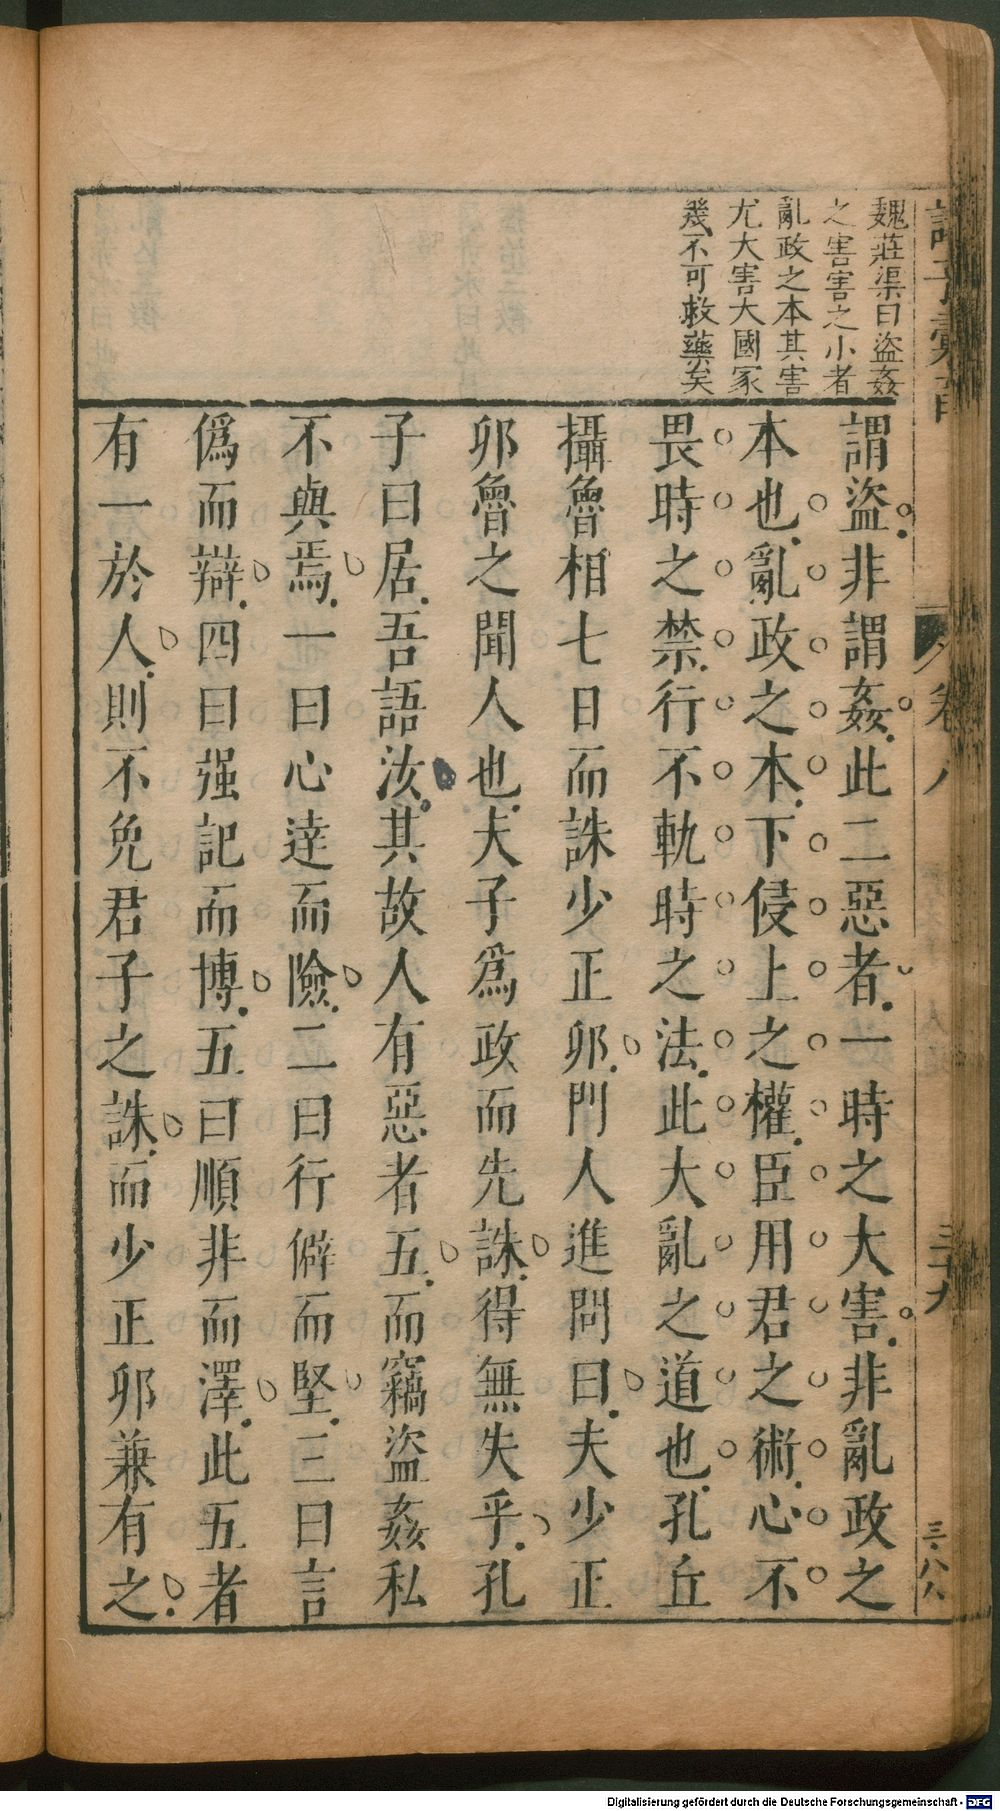 魏莊渠曰盜姦
之害害之小者
亂政之本其害
尤大害大國家
幾不可救藥矣
謂盜非謂姦此二惡者一時之大害非亂政之
本也亂政之本下侵上之權臣用君之術心不
畏時之禁行不軌時之法此大亂之道也孔丘
攝魯相七日而誅少正卯門人進問曰夫少正
卯魯之聞人也夫子爲政而先誅得無失乎孔
子曰居吾語汝其故人有惡者五而竊盜姦私
不與焉一曰心達而險二曰行僻而堅三曰言
僞而辯四曰强記而博五曰順非而澤此五者
有一於人則不免君子之誅而少正卯兼有之
卷八
三十九
三八八
Digitalisierung gefördert durch die Deutsche Forschungsgemeinschaft - DFG